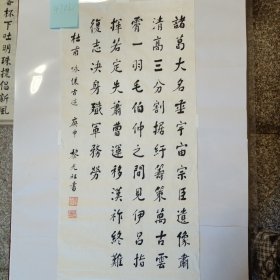 諸葛大名垂宇宙宗臣遺像肅
清高三分割據紆籌策萬古雲
霄一羽毛伯仲之間見伊呂指
揮若定失蕭曹運移漢祚終難
復志決身殲軍務勞
杜甫 詠懷古迹 庚申 書
杯下吐明珠提倡新風